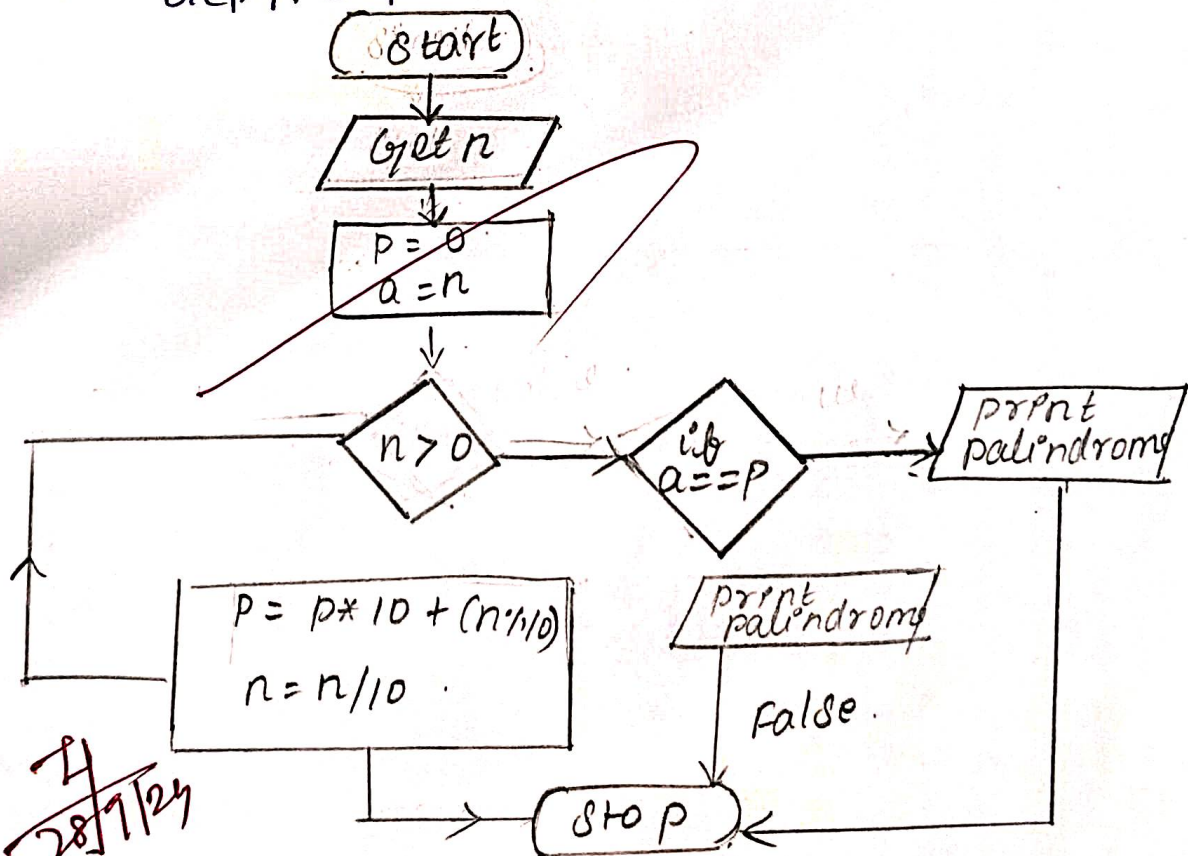 Start
Get n
p = 0
a = n
n > 0
if
a==p
print
palindrome
p = p* 10 + (n%10)
n = n/10
print
palindrome
False.
stop
28/9/24